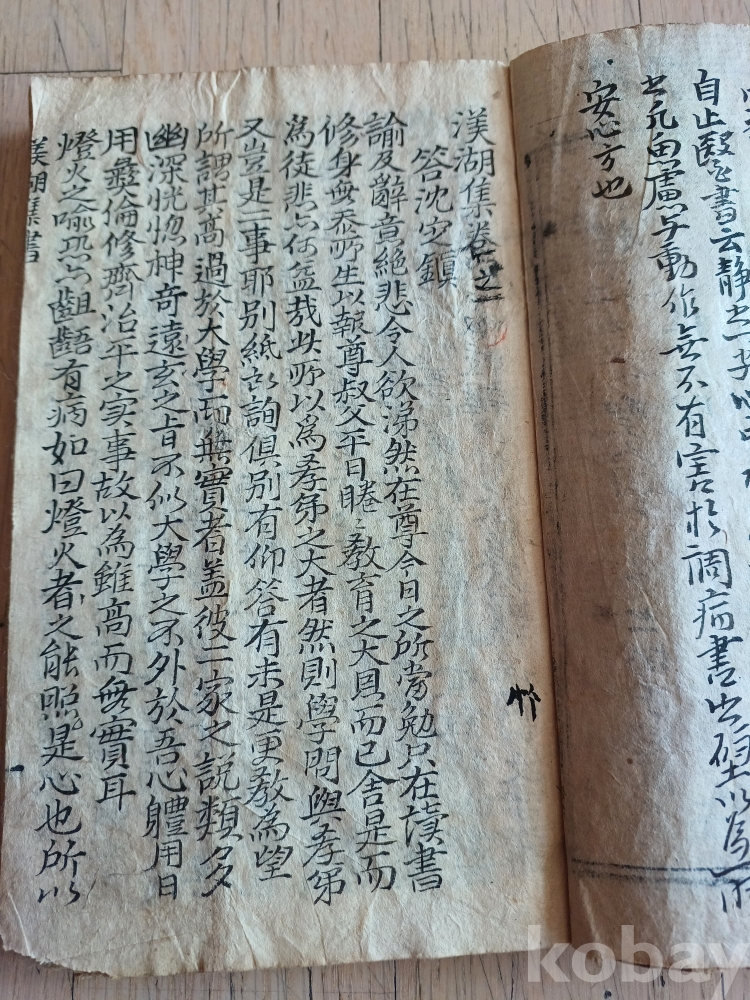 自止醫書云静
凡思慮与動作無不有害於調病書之壁以爲
安心方也
渼湖集卷之
答沈定鎮
諭及辭意絶悲令人欲涕然在尊今日之所當勉只在讀書
修身無忝所生以報尊叔父平日睠〻教育之大恩而已舍是而
爲徒悲亦何益哉此所以爲孝弟之大者然則學問與孝弟
又豈是二事耶別紙所詢俱別有仰答有未是更教爲望
所謂其高過於大學而無實者盖彼二家之説類多
幽深恍惚神奇遠玄之旨不似大學之不外於吾心體用日
用彝倫修齊治平之实事故以為雖高而無實耳
燈火之喩恐亦齟齬有病如曰燈火者之能照是心也所以
渼湖集書
kobay